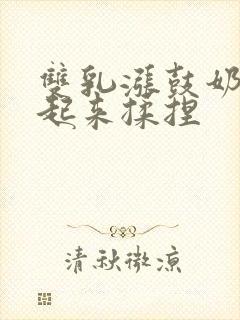 雙乳漲鼓奶
起來揉捏
清秋微涼